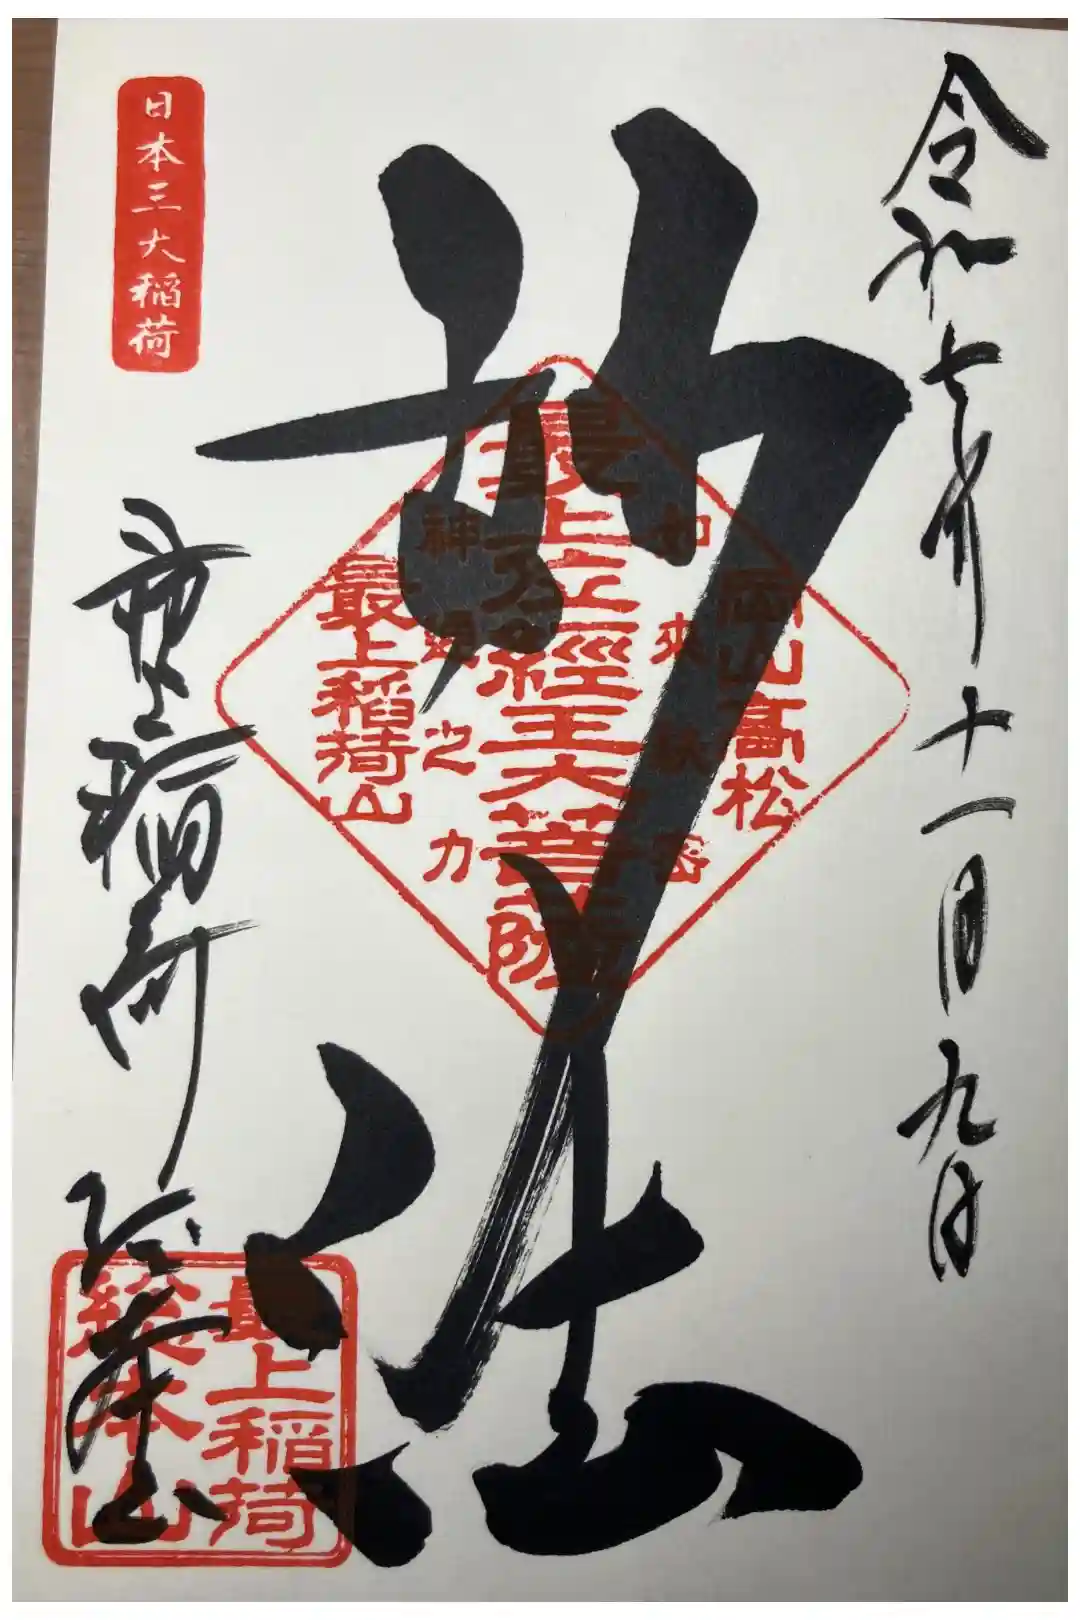 令和七年十一月九日
妙法
岡山高松
如来秘密
最上位経王大菩薩
神通之力
最上稲荷山
日本三大稲荷
最上稲荷総本山
最上稲荷
総本山